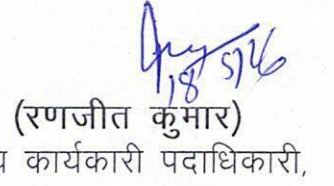 18/5/26
(रणजीत कुमार)
कार्यकारी पदाधिकारी,